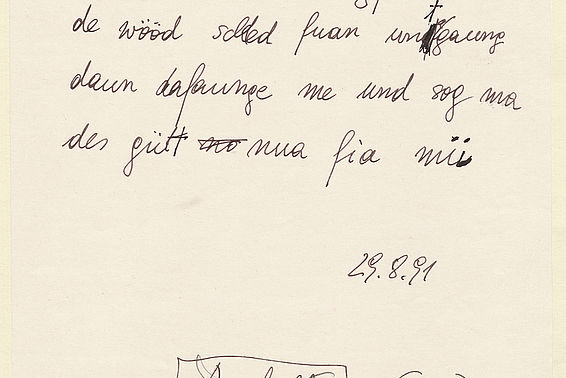 de wööd solled fuan
daun dafaunge me und sog ma
des gütt no nua fia mii
29.8.91